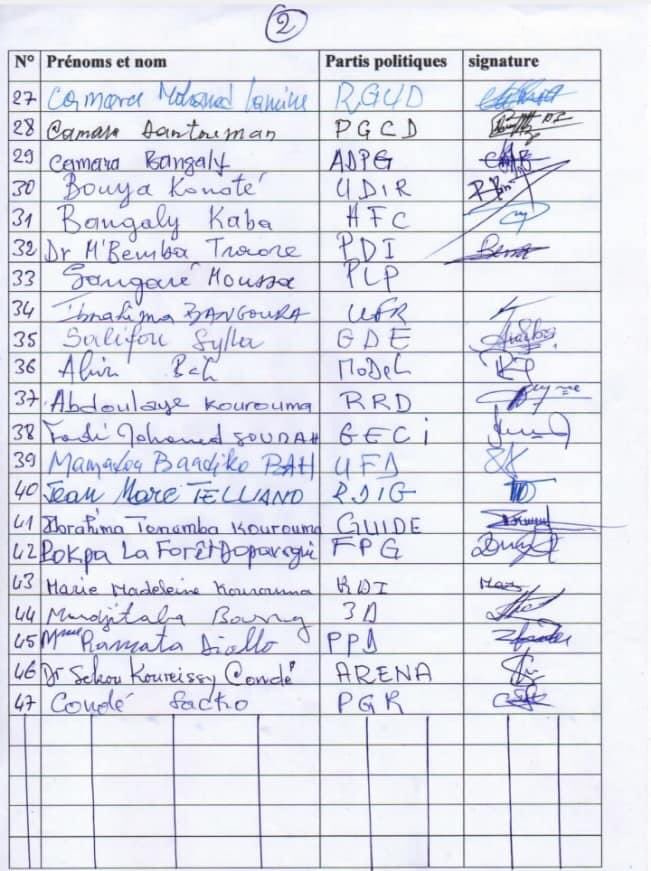 2
N° Prénoms et nom Partis politiques signature
27 Camara Mohamed Lamine RGUD
28 Camara PGCD
29 Camara Bangaly ADPG
30 Bouya Konaté UDIR
31 Bangaly Kaba HFC
32 Dr M'Bemba Traore PDI
33 Sangaré Moussa PLP
34 Ibrahima BANGOURA UFR
35 Salifou Sylla GDE
36 MoDeL
37 Abdoulaye Kourouma RRD
38 Fodé Mohamed SOUMAH GECi
39 Mamadou Baadiko BAH UFD
40 Jean Marc TELLIANO RDIG
41 Ibrahima Tonamba Kourouma GUIDE
42 Pokpa La Forêt FPG
43 Marie Madeleine Kourouma RDI
44 3D
45 Mme Ramata Diallo PPD
46 Dr Sekou Koureissy Condé ARENA
47 Condé Sacko PGR